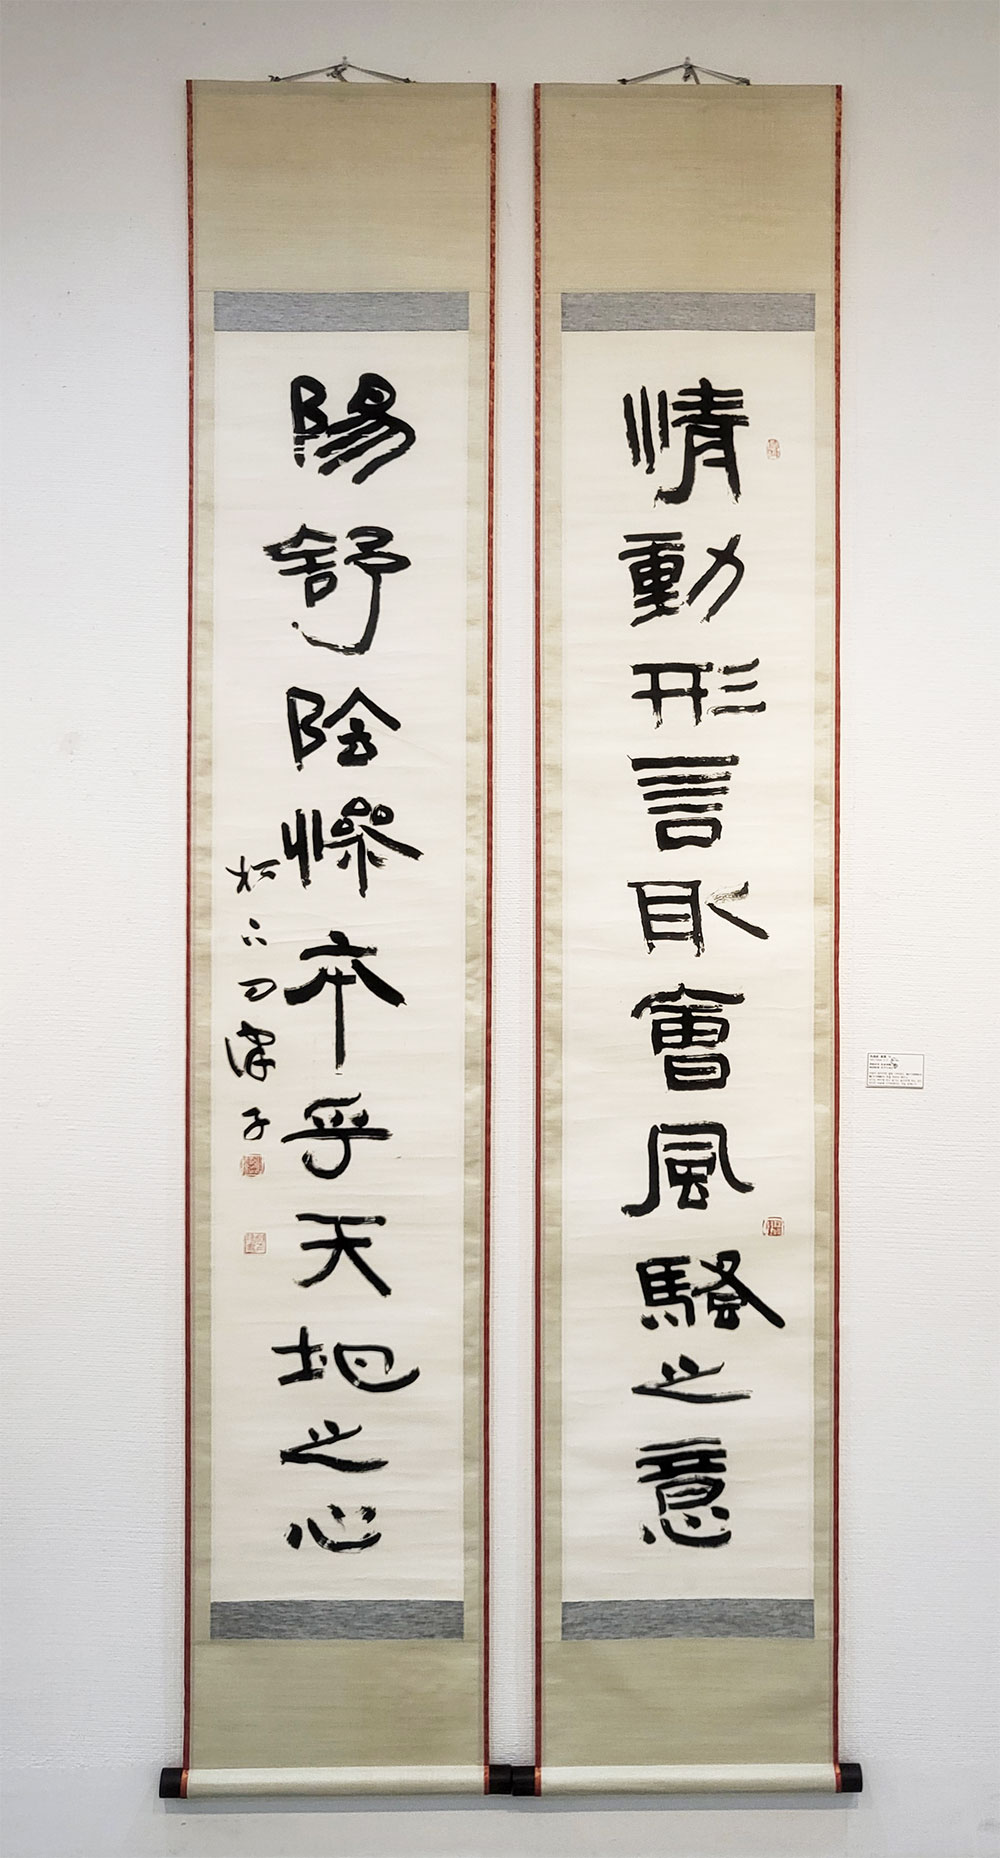 情動形言取會風騷之意
陽舒陰慘本乎天地之心